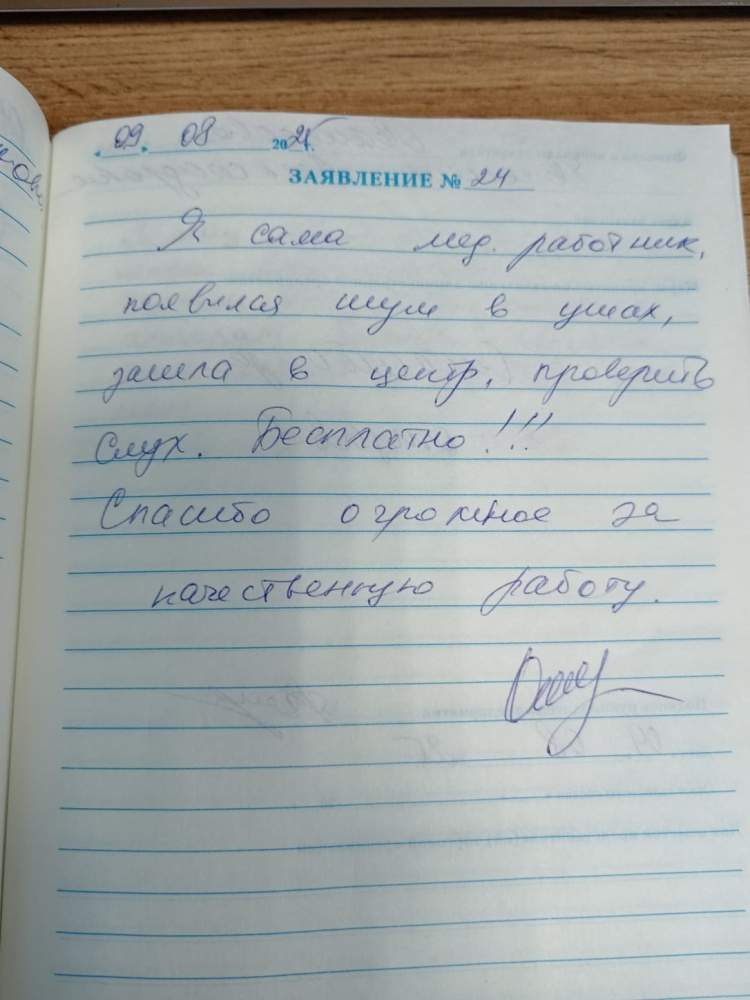 09. 08 2025г.
ЗАЯВЛЕНИЕ № 24
Я сама мед. работник,
появился шум в ушах,
зашла в центр, проверить
слух. Бесплатно!!!
Спасибо огромное за
качественную работу.